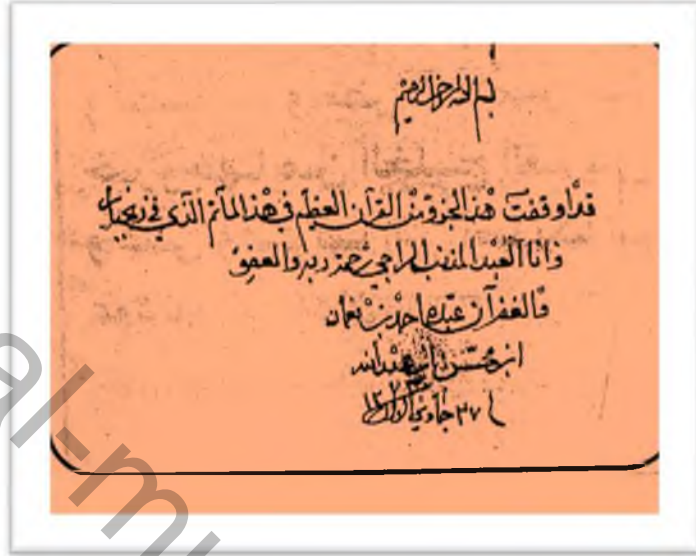 بسم الله الرحمن الرحيم
قد اوقفت هذ الجزو من القرآن العظيم في هذ المأتم الذي في زنجبار
وانا العبد المذنب الراجي رحمة ربه والعفو
والغفران عبده احمد بن نعمان
ابن محسن بن عبد الله
٢٧ جماد
al-mu